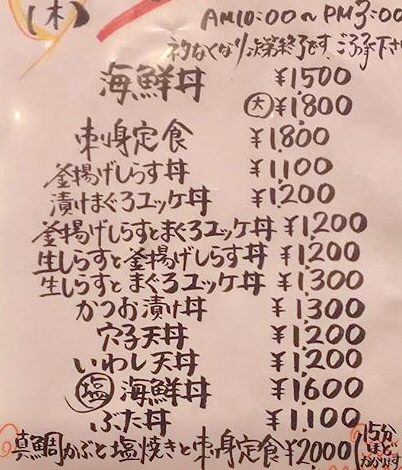 (木)
AM10:00~PM3:00
ネタなくなり次第終了です。ご了承下さい
海鮮丼 ¥1500
大 ¥1,800
刺身定食 ¥1,800
釜揚げしらす丼 ¥1,100
漬けまぐろユッケ丼 ¥1200
釜揚げしらすとまぐろユッケ丼 ¥1,200
生しらすと釜揚げしらす丼 ¥1,200
生しらすとまぐろユッケ丼 ¥1,300
かつお漬け丼 ¥1,300
穴子天丼 ¥1,200
いわし天丼 ¥1,200
塩 海鮮丼 ¥1,600
ぶた丼 ¥1,100
真鯛かぶと塩焼きと刺身定食 ¥2000 15分ほどかかります